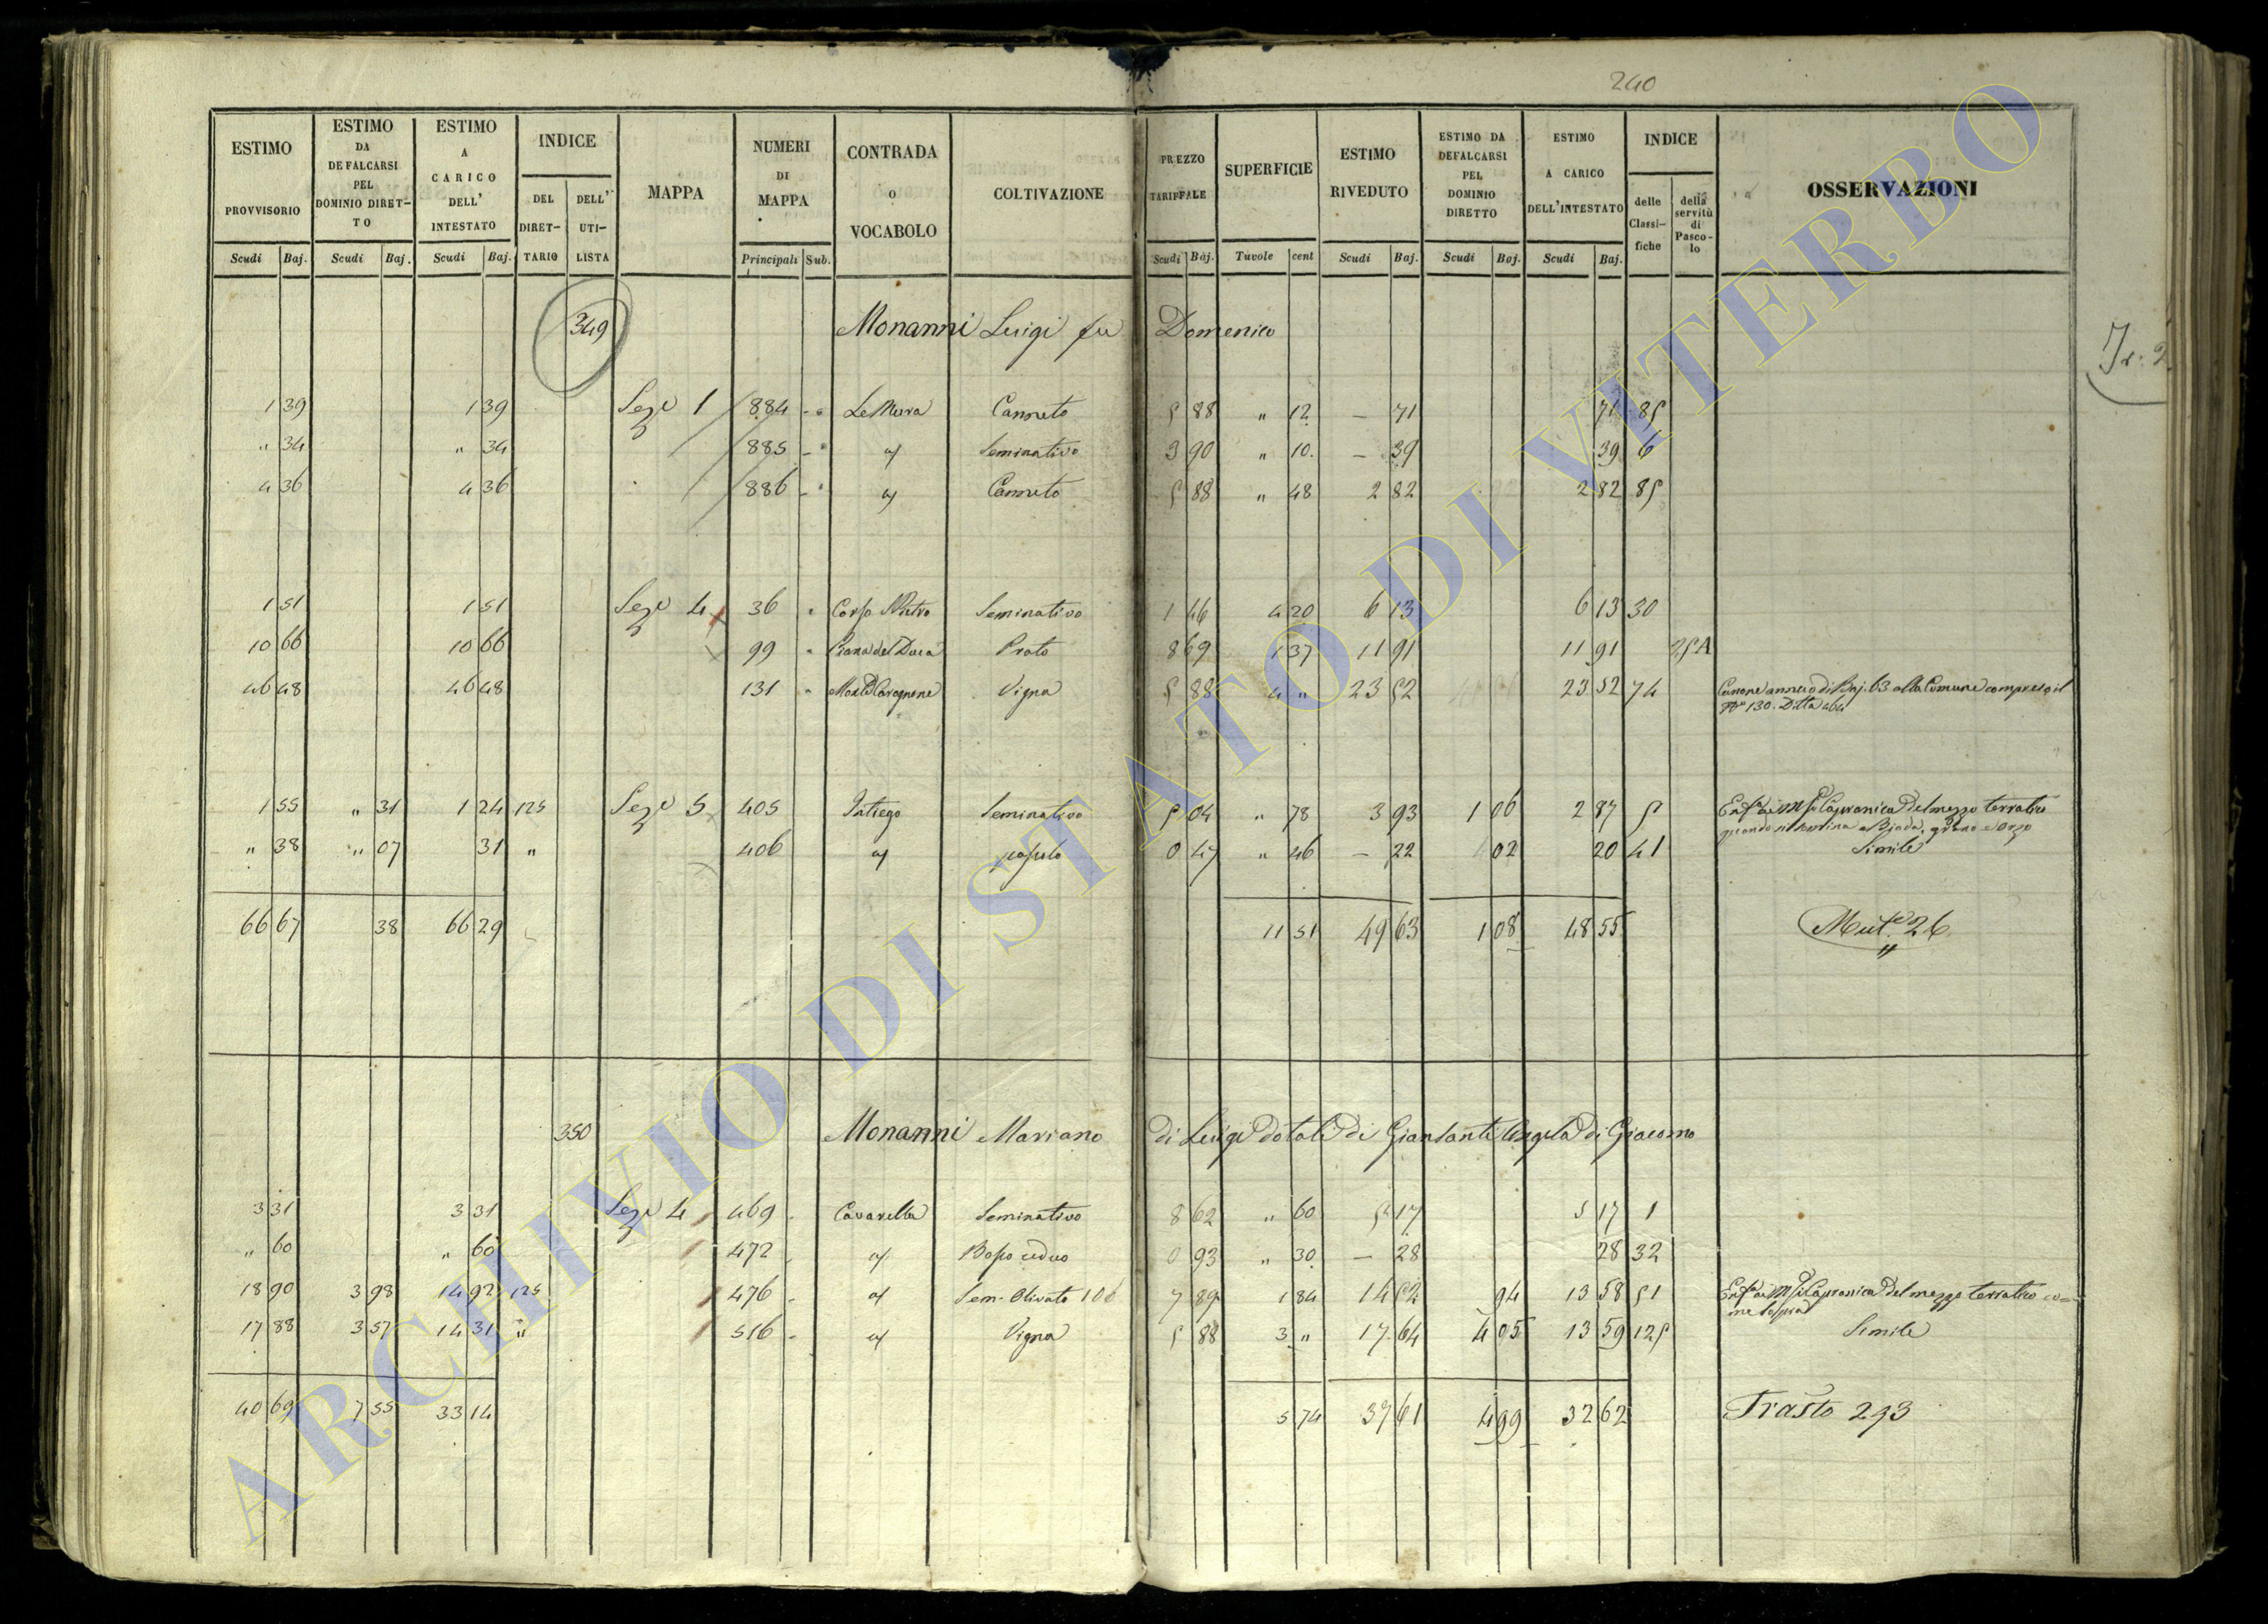 240
ESTIMO PROVVISORIO | ESTIMO DA DEFALCARSI PEL DOMINIO DIRETTO | ESTIMO A CARICO DELL' INTESTATO | INDICE | MAPPA | NUMERI DI MAPPA | CONTRADA O VOCABOLO | COLTIVAZIONE | PREZZO TARIFFALE | SUPERFICIE | ESTIMO RIVEDUTO | ESTIMO DA DEFALCARSI PEL DOMINIO DIRETTO | ESTIMO A CARICO DELL'INTESTATO | INDICE | OSSERVAZIONI
DEL DIRET-TARIO | DELL' UTI-LISTA | delle Classi-fiche | della servitù di Pasco-lo
Scudi Baj. | Scudi Baj. | Scudi Baj. | Principali Sub. | Scudi Baj. | Tavole cent | Scudi Baj. | Scudi Baj. | Scudi Baj.
349 Monanni Luigi fu Domenico
1 39 | 1 39 | Seze 1 | 884 | Le Mura | Canneto | 5 88 | " 12 | – 71 | 71 | 85
" 34 | " 34 | 885 | a/ | Seminativo | 3 90 | " 10 | – 39 | 39 | 6
4 36 | 4 36 | 886 | a/ | Canneto | 5 88 | " 48 | 2 82 | 2 82 | 85
1 51 | 1 51 | Seze 4 | 36 | Seminativo | 1 46 | 4 20 | 6 13 | 6 13 | 30
10 66 | 10 66 | 99 | Piana del Duca | Prato | 8 69 | 1 37 | 11 91 | 11 91 | 25A
46 48 | 46 48 | 131 | Vigna | 5 88 | 4 " | 23 52 | 23 52 | 74 | Canone annuo di Baj. 63 alla Comune compreso il
No 130. Ditta 464
1 55 | " 31 | 1 24 | 125 | Seze 5 | 405 | Intiego | Seminativo | 5 04 | " 78 | 3 93 | 1 06 | 2 87 | 5 | Capranica del mezzo terratico
quando si semina a Biada, grano e orzo
" 38 | " 07 | 31 | " | 406 | a/ | pascolo | 0 47 | " 46 | – 22 | 02 | 20 | 41 | Simile
66 67 | 38 | 66 29 | 11 51 | 49 63 | 1 08 | 48 55 | Mute 26
350 Monanni Mariano di Luigi dotali di Giansanti Angela di Giacomo
3 31 | 3 31 | Seze 4 | 469 | Cavarella | Seminativo | 8 62 | " 60 | 5 17 | 5 17 | 1
" 60 | " 60 | 472 | a/ | Bosco ceduo | 0 93 | " 30 | – 28 | 28 | 32
18 90 | 3 98 | 14 92 | 125 | 476 | a/ | Sem. Olivato 106 | 7 89 | 1 84 | 14 52 | 94 | 13 58 | 51 | Capranica del mezzo terratico co=
me sopra
17 88 | 3 57 | 14 31 | " | 516 | a/ | Vigna | 5 88 | 3 " | 17 64 | 4 05 | 13 59 | 125 | Simile
40 69 | 7 55 | 33 14 | 5 74 | 37 61 | 4 99 | 32 62 | Trasto 293
ARCHIVIO DI STATO DI VITERBO